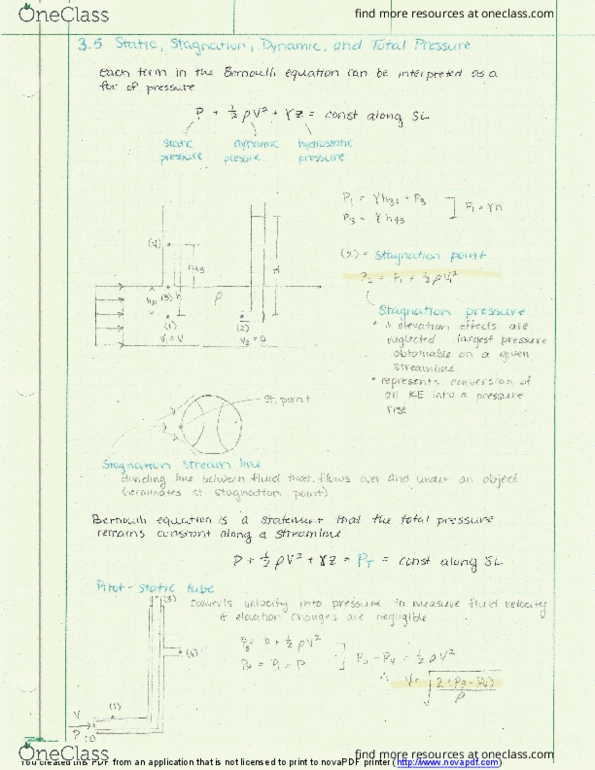 OneClass
find more resources at oneclass.com
3.5 Static, Stagnation, Dynamic, and Total Pressure
each term in the Bernoulli equation can be interpreted as a
for of pressure
P + ½ρV² + γz = const along SL
static dynamic hydrostatic
pressure pressure pressure
P₁ = γh₃₁ + P₃
P₃ = γh₄₃
P₁ = γh
(4)
h₄₃
H
(3)
h
ρ
h₃₁
(1)
(2)
V₁ = V
V₂ = 0
(2) = Stagnation point
P₂ = P₁ + ½ρV₁²
Stagnation pressure
• if elevation effects are
neglected largest pressure
obtainable on a given
streamline
• represents conversion of
all KE into a pressure
rise
St. point
Stagnation stream line
dividing line between fluid that flows over and under an object
(terminates at stagnation point)
Bernoulli equation is a statement that the total pressure
remains constant along a streamline
P + ½ρV² + γz = P_T = const along SL
Pitot-static tube
(3)
converts velocity into pressure to measure fluid velocity
if elevation changes are negligible
P₃ = P + ½ρV²
P₄ = P₁ = P
P₃ - P₄ = ½ρV²
∴ V = √(2(P₃ - P₄)/ρ)
(4)
(1)
V
P
(2)
OneClass
find more resources at oneclass.com
You created this PDF from an application that is not licensed to print to novaPDF printer (http://www.novapdf.com)